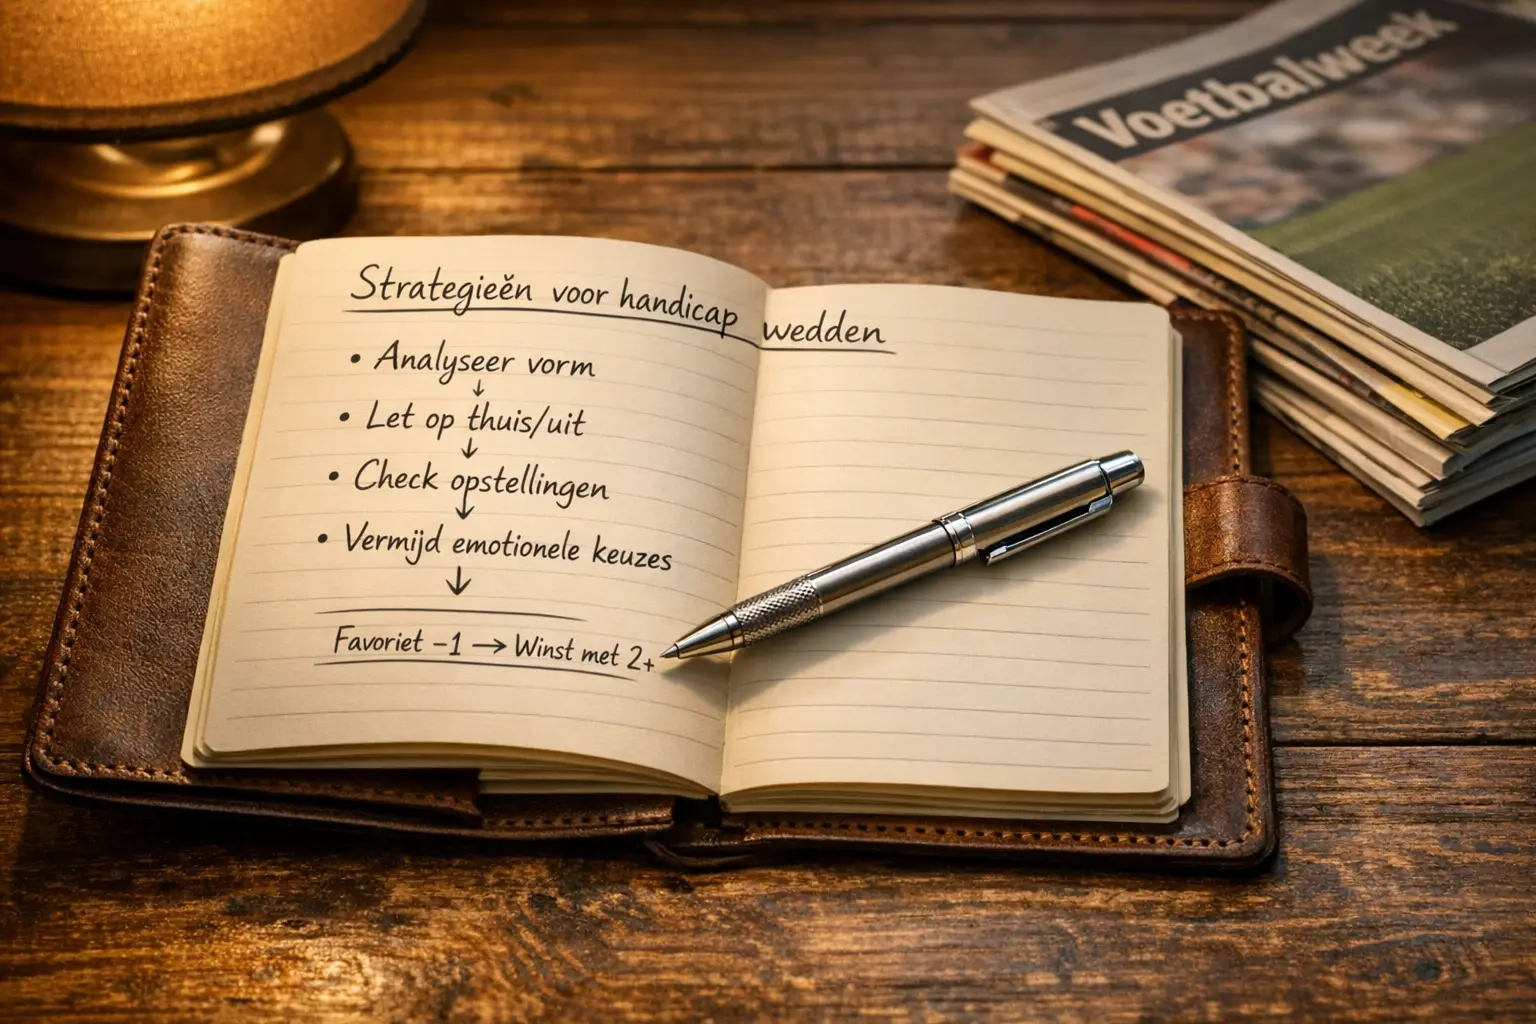 Strategieën voor handicap wedden
• Analyseer vorm
↓
• Let op thuis/uit
↓
• Check opstellingen
↓
• Vermijd emotionele keuzes
↓
Favoriet -1 → Winst met 2+
Voetbalweek